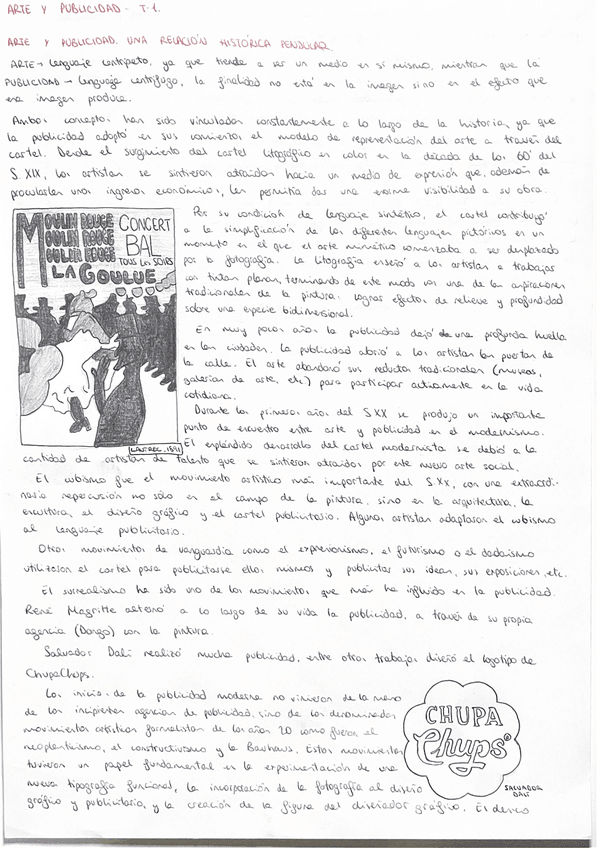 ARTE Y PUBLICIDAD - T.1.
ARTE Y PUBLICIDAD. UNA RELACIÓN HISTÓRICA PENDULAR.
ARTE → Lenguaje centrípeto, ya que tiende a ser un medio en sí mismo, mientras que la
PUBLICIDAD → Lenguaje centrífugo, la finalidad no está en la imagen sino en el efecto que
esa imagen produce.
Ambos conceptos han sido vinculados constantemente a lo largo de la historia, ya que
la publicidad adoptó en sus comienzos el modelo de representación del arte a través del
cartel. Desde el surgimiento del cartel litográfico en color en la década de los 60' del
S.XIX, los artistas se sintieron atraídos hacia un medio de expresión que, además de
procurarles unos ingresos económicos, les permitía dar una enorme visibilidad a su obra.
MOULIN ROUGE CONCERT
MOULIN ROUGE BAL
MOULIN ROUGE TOUS LES SOIRS
LA GOULUE
LAUTREC. 1891
Por su condición de lenguaje sintético, el cartel contribuyó
a la simplificación de los diferentes lenguajes pictóricos en un
momento en el que el arte mimético comenzaba a ser desplazado
por la fotografía. La litografía enseñó a los artistas a trabajar
con tintas planas, terminando de este modo con una de las aspiraciones
tradicionales de la pintura: lograr efectos de relieve y profundidad
sobre una especie bidimensional.
En muy pocos años la publicidad dejó una profunda huella
en las ciudades. La publicidad abrió a los artistas las puertas de
la calle. El arte abandonó sus reductos tradicionales (museos,
galerías de arte, etc) para participar activamente en la vida
cotidiana.
Durante los primeros años del SXX se produjo un importante
punto de encuentro entre arte y publicidad en el modernismo.
El espléndido desarrollo del cartel modernista se debió a la
cantidad de artistas de talento que se sintieron atraídos por este nuevo arte social.
El cubismo fue el movimiento artístico más importante del S.XX, con una extraordi-
naria repercusión no sólo en el campo de la pintura, sino en la arquitectura, la
escultura, el diseño gráfico y el cartel publicitario. Algunos artistas adaptaron el cubismo
al lenguaje publicitario.
Otros movimientos de vanguardia como el expresionismo, el futurismo o el dadaísmo
utilizaron el cartel para publicitarse ellos mismos y publicitar sus ideas, sus exposiciones, etc.
El surrealismo ha sido uno de los movimientos que más ha influido en la publicidad.
René Magritte alternó a lo largo de su vida la publicidad, a través de su propia
agencia (Dongo) con la pintura.
Salvador Dalí realizó mucha publicidad, entre otros trabajos diseñó el logotipo de
ChupaChups.
Los inicios de la publicidad moderna no vinieron de la mano
de los incipientes agencias de publicidad, sino de los denominados
movimientos artísticos formalistas de los años 20 como fueron el
neoplasticismo, el constructivismo y la Bauhaus. Estos movimientos
tuvieron un papel fundamental en la experimentación de una
nueva tipografía funcional, la incorporación de la fotografía al diseño
gráfico y publicitario, y la creación de la figura del diseñador gráfico. El deseo
CHUPA
Chups®
SALVADOR
DALÍ